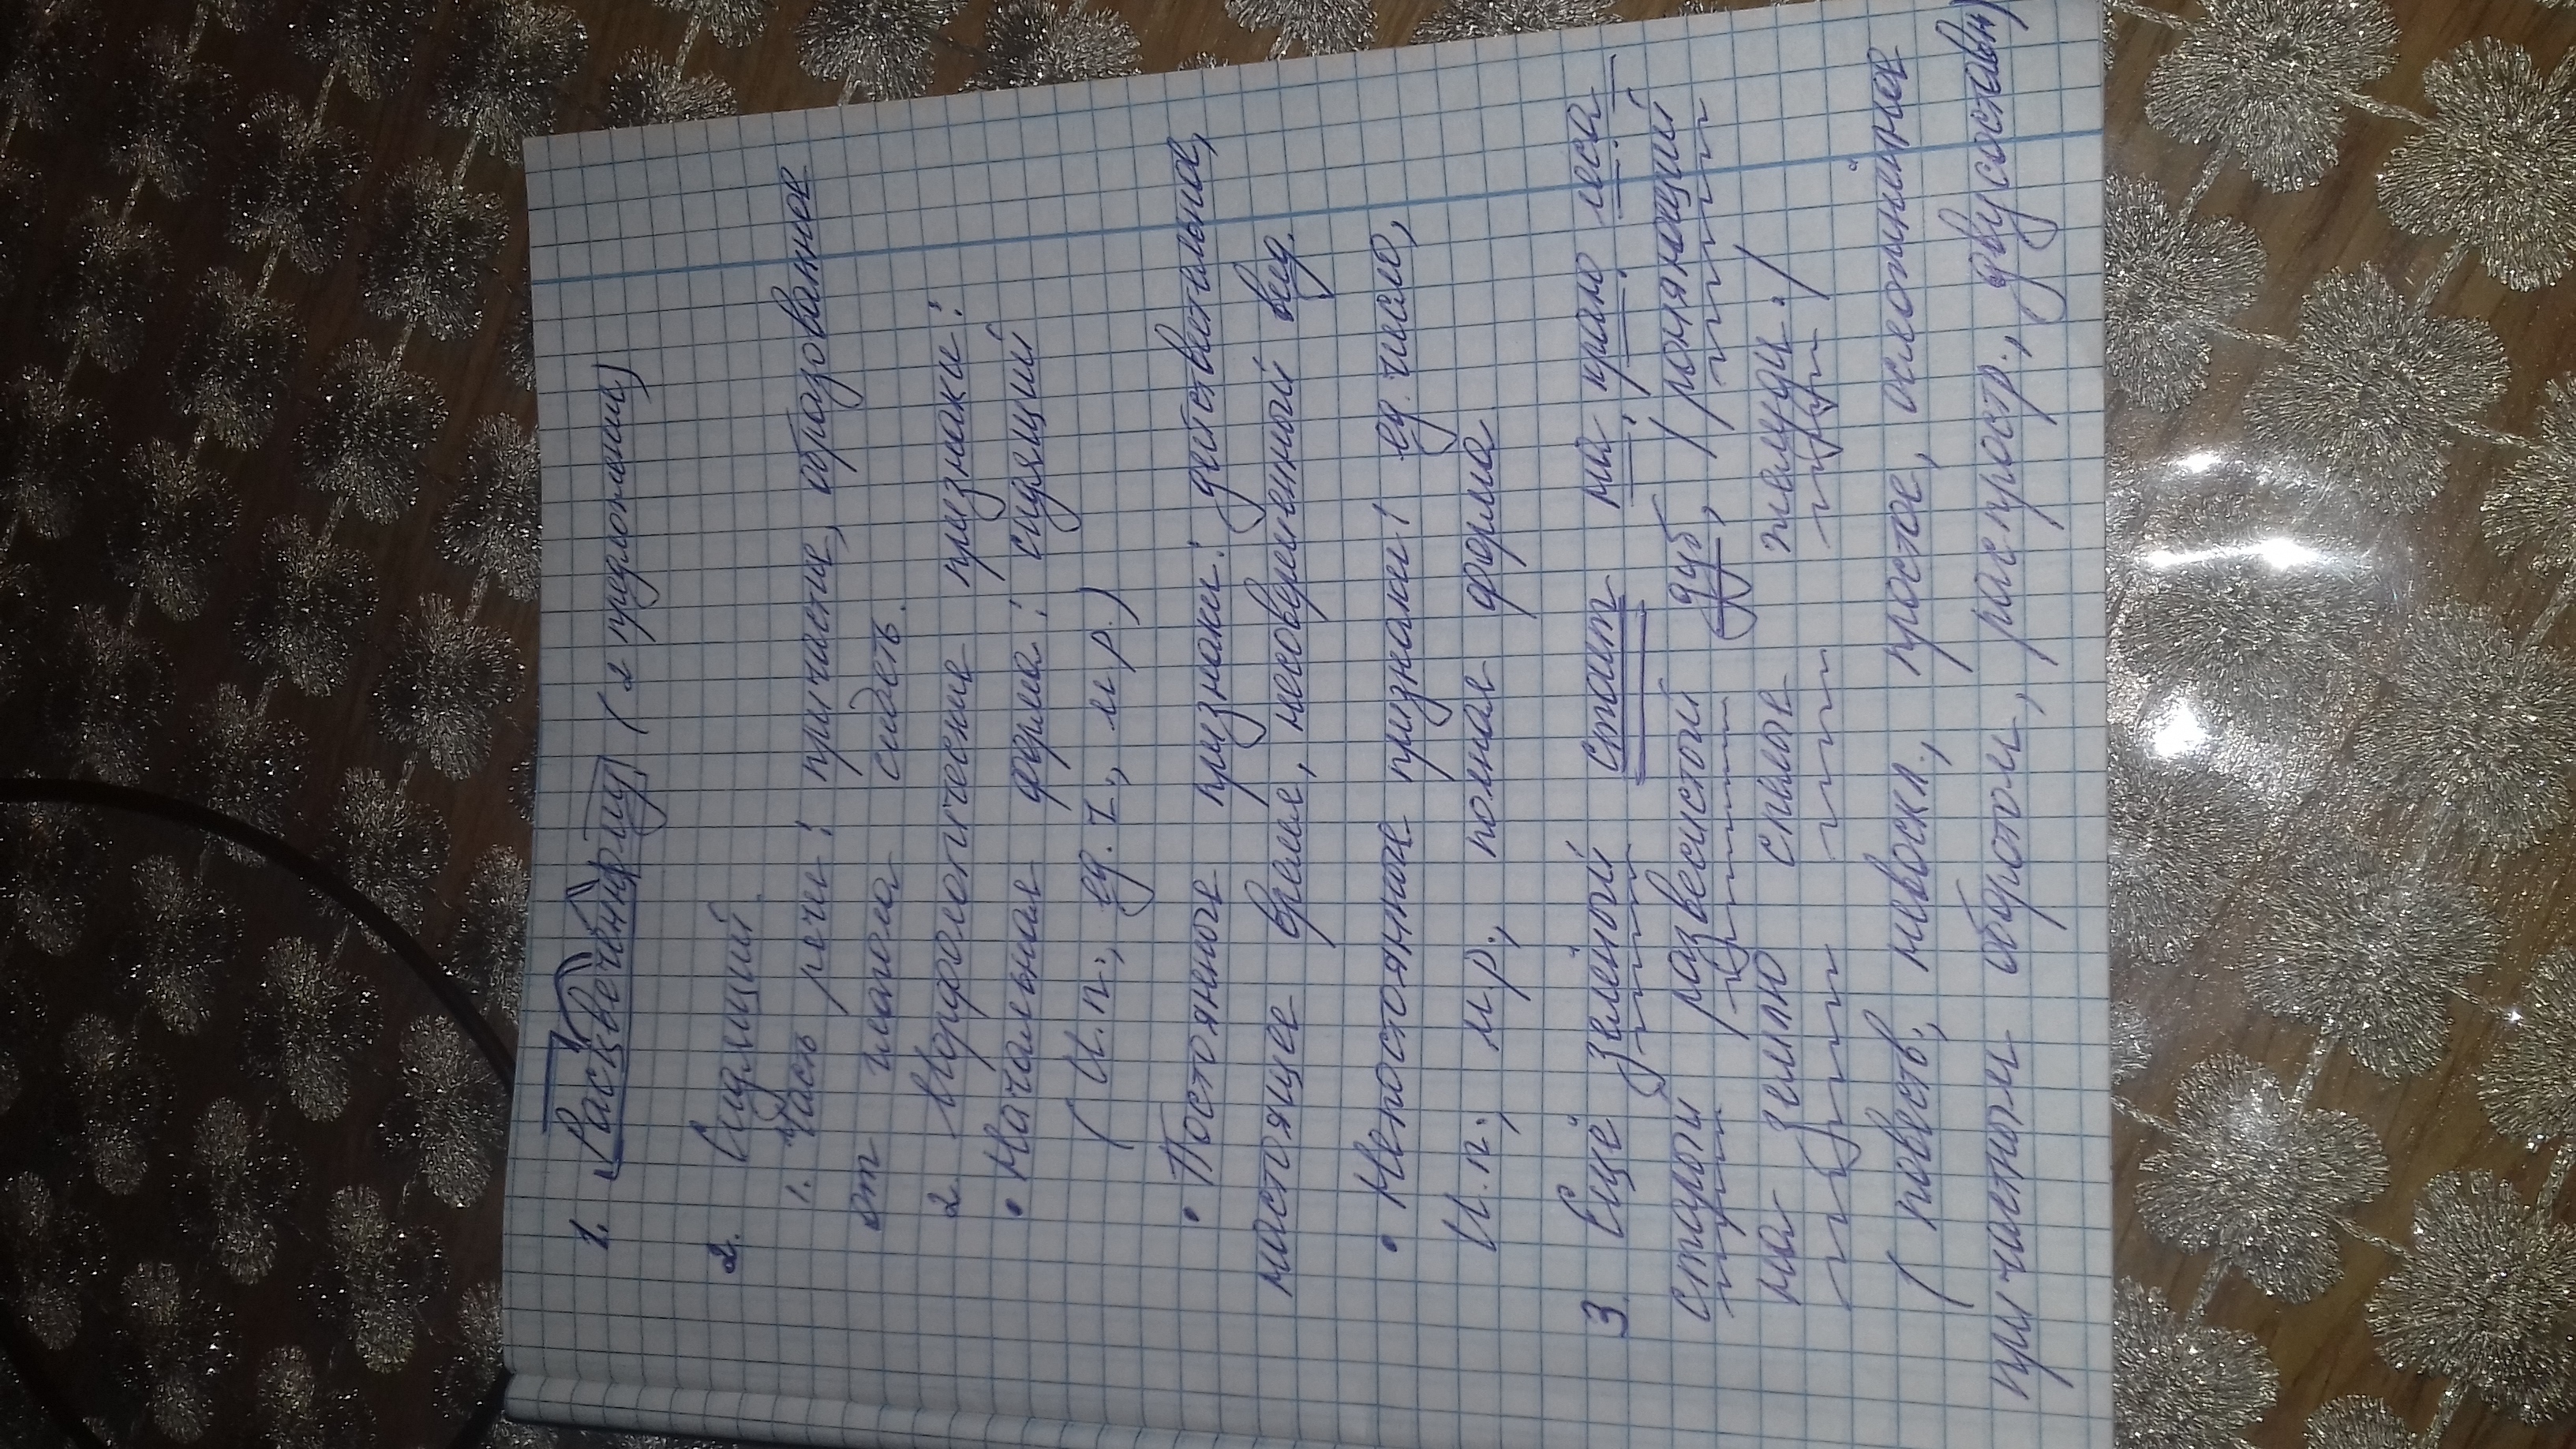 1. Расквеченную (2 предложении)
2. Сидящий.
1. Часть речи: причастие, образованное
от глагола сидеть.
2. Морфологические признаки:
• Начальная форма: сидящий
(И.п., ед. ч., м.р.)
• Постоянные признаки: действительное,
настоящее время, несовершенный вид.
• Непостоянные признаки: ед. число,
И.п., м.р., полная форма.
3. Ещё зелёный стоит на краю леса
старый развесистый дуб, / роняющий
на землю спелые жёлуди. /
(повеств., невоскл., простое, осложнённое
причастным оборотом, распростр., двусоставн)